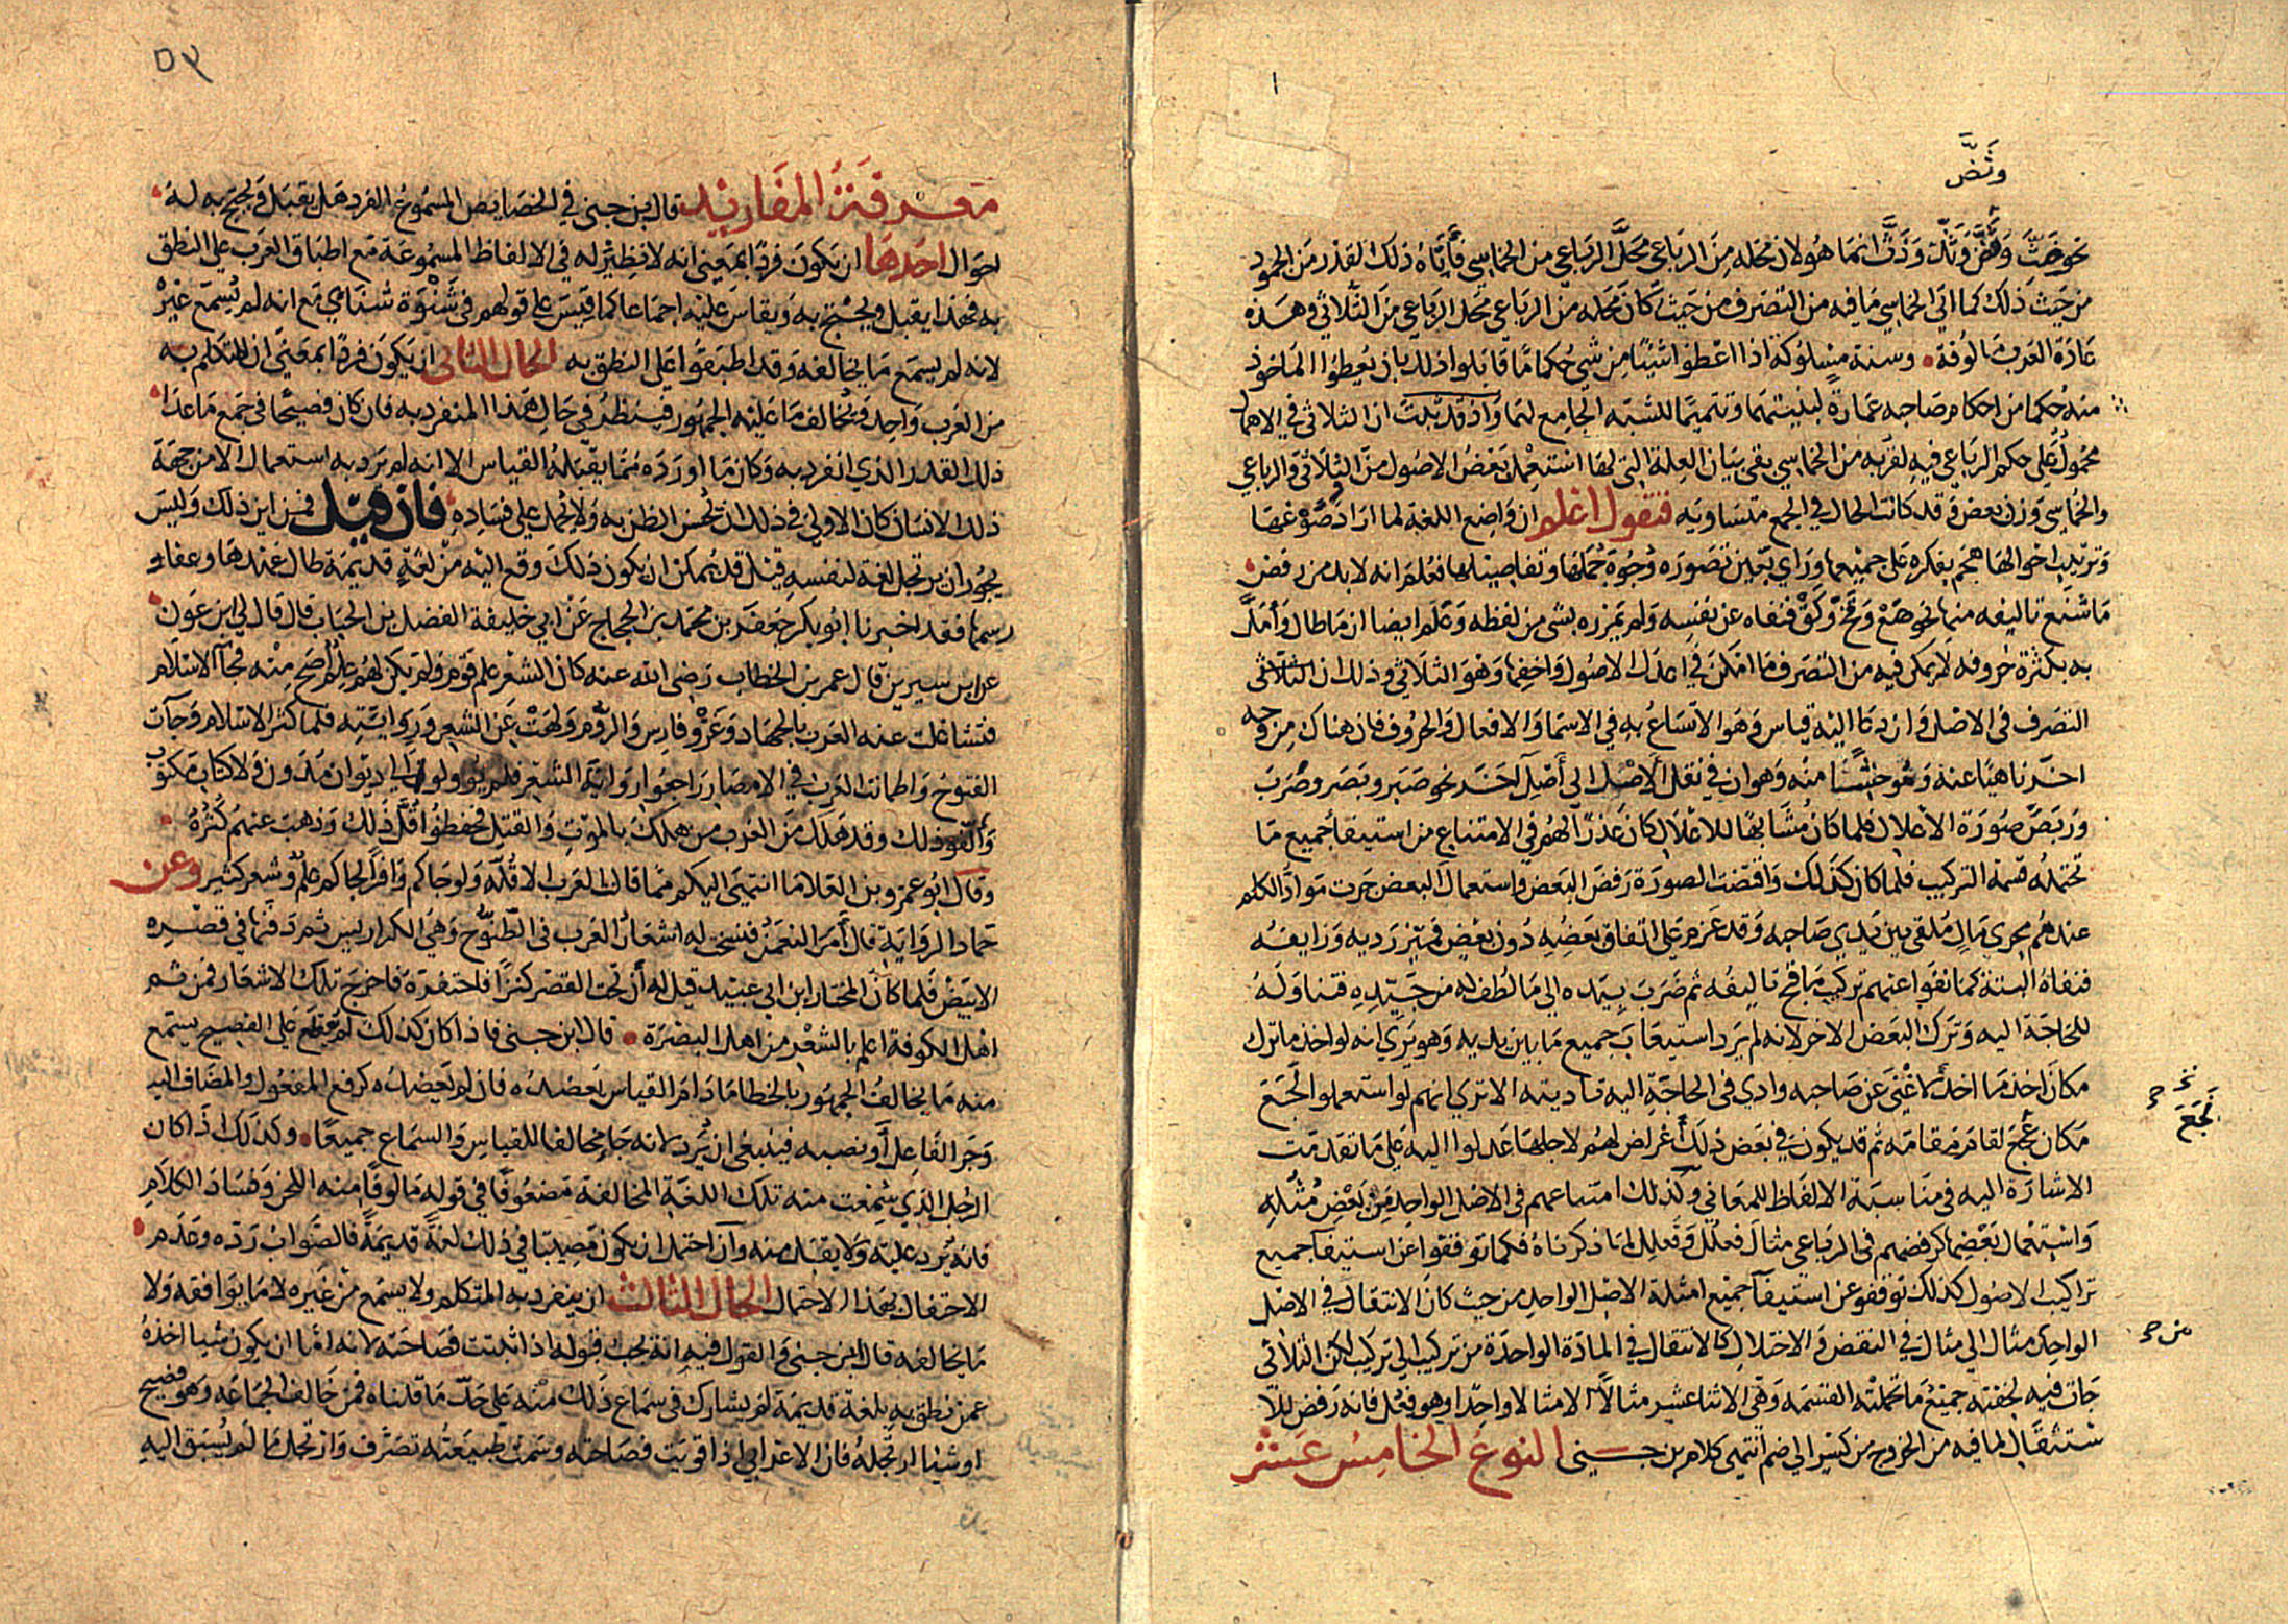 وتضّ
نحو حثّ وهنّ وثلّ وذثّ انما هو لان محله من الرباعي محل الرباعي من الخماسي فأتاه ذلك القدر من الجمود
من حيث ذلك كما اتى الخماسي ما فيه من التصرف من حيث كان محله من الرباعي محل الرباعي من الثلاثي وهذه
عادة العرب مالوفة وسنة مسلوكة اذا اعطوا شيئا من شي حكما ما قابلوا ذلك بان يعطوا الماخوذ
منه حكما من احكام صاحبه عمارة لبينهما وتتميما للشبه الجامع لهما واذ قد ثبت ان الثلاثي في الاهمال
محمول على حكم الرباعي فيه لقربه من الخماسي بقي بيان العلة التي لها استعمل بعض الاصول من الثلاثي والرباعي
والخماسي دون بعض وقد كانت الحال في الجمع متساويه فنقول اعلم ان واضع اللغة لما اراد صوغها
وترتيب احوالها هجم بفكره على جميعها وراي بعين تصوره وجوه جملها وتفاصيلها فعلم انه لا بد من رفض
ما شنع تاليفه منها نحو هع وقخ وكق فنفاه عن نفسه ولم يمزره بشي من لفظه وعلم ايضا ان ما طال وامل
به بكثرة حروفه لا يمكن فيه من التصرف ما امكن في اعدل الاصول واخفها وهو الثلاثي وذلك ان الثلاثي
التصرف في الاصل وان دعا اليه قياس وهو الاتساع به في الاسما والافعال والحروف فان هناك من وجه
اخر ناهيا عنه وموحشا منه وهو ان في نقل الاصل الى اصل اخر نحو صبر وبصر وضرب
وربض صورة الاعلال فلما كان مشابها للاعلال كان عذرا لهم في الامتناع من استيفا جميع ما
تحتمله قسمة التركيب فلما كان كذلك واقتضت الصورة رفض البعض واستعمال البعض جرت مواد الكلم
عندهم مجرى مال ملقى بين يدي صاحبه وقد عزم على انفاق بعضه دون بعض فميز رديه وزايفه
فنفاه البتة كما نفوا عنهم تركيب ما قبح تاليفه ثم ضرب بيده الى ما لطف له من جيده فتناوله
للحاجة اليه وترك البعض الاخر لانه لم يرد استيعاب جميع ما بين يديه وهو يرى انه لو اخذ ما ترك
مكان اخذ ما اخذ لاغنى عن صاحبه وادى في الحاجة اليه تاديته الا ترى انهم لو استعملوا لجع
نخـ
لجع
مكان نجع لقام مقامه ثم قد يكون في بعض ذلك اغراض لهم لاجلها عدلوا اليه على ما تقدمت
الاشارة اليه في مناسبة الالفاظ للمعاني وكذلك امتناعهم في الاصل الواحد من بعض مثله
واستعمال بعضها كرفضهم في الرباعي مثال فعلل وفعلل لما ذكرناه فكما توقفوا عن استيفا جميع
تراكيب الاصول كذلك توقفوا عن استيفا جميع امثلة الاصل الواحد من حيث كان الانتقال في الاصل
الواحد من مثال الى مثال في النقض والاختلال كالانتقال في المادة الواحدة من تركيب الى تركيب لكن الثلاثي
من
جات فيه لخفته جميع ما تحتمله القسمة وهي الاثنا عشر مثالا الا مثالا واحدا وهو فعل فانه رفض للا
ستثقال لما فيه من الخروج من كسر الى ضم انتهى كلام بن جنى النوع الخامس عشر
٥٢
معرفة المفاريد قال بن جني في الخصايص المسموع الفرد هل يقبل ويحتج به له
احوال احدها ان يكون فردا بمعنى انه لا نظير له في الالفاظ المسموعة مع اطباق العرب على النطق
به فهذا يقبل ويحتج به ويقاس عليه اجماعا كما قيس على قولهم في شنوة شناي مع انه لم يسمع غيره
لانه لم يسمع ما يخالفه وقد اطبقوا على النطق به الحال الثاني ان يكون فردا بمعنى ان المتكلم به
من العرب واحد ويخالف ما عليه الجمهور فينظر في حال هذا المنفرد به فان كان فصيحا في جمع ما عدا
ذلك القدر الذي انفرد به وكان ما اورده مما يقبله القياس الا انه لم يرد به استعمال الا من جهة
ذلك الانسان كان الاولى في ذلك ان يحسن الظن به ولا يحمل على فساده فان قيل فمن اين ذلك وليس
يجوز ان يرتجل لغة لنفسه قيل قد يمكن ان يكون ذلك وقع اليه من لغة قديمة طال عهدها وعفا
رسمها فقد اخبرنا ابو بكر جعفر بن محمد بن الحجاج عن ابي خليفة الفضل بن الحباب قال قال لي ابن عون
عن ابن سيرين قال عمر بن الخطاب رضي الله عنه كان الشعر علم قوم ولم يكن لهم علم اصح منه فجآ الاسلام
فتشاغلت عنه العرب بالجهاد وغزو فارس والروم ولهت عن الشعر وروايته فلما كثر الاسلام وجات
الفتوح واطمانت العرب في الامصار راجعوا رواية الشعر فلم يوولوا الى ديوان مدون ولا كتاب مكتوب
وألفو ذلك وقد هلك من العرب من هلك بالموت والقتل فحفظوا اقل ذلك وذهب عنهم كثره
وقال ابو عمرو بن العلا ما انتهى اليكم مما قالت العرب الا قله ولو جاكم وافرا لجاكم علم وشعر كثير وعن
حماد الرواية قال امر النعمن فنسخت له اشعار العرب في الطنوج وهي الكراريس ثم دفنها في قصره
الابيض فلما كان المختار ابن ابي عبيد قيل له ان تحت القصر كنزا فاحتفره فاخرج تلك الاشعار فمن ثم
اهل الكوفة اعلم بالشعر من اهل البصرة قال ابن جني فاذا كان كذلك لم يقطع على الفصيح يسمع
منه ما يخالف الجمهور بالخطا ما دام القياس يعضده فان لم يعضده كرفع المفعول والمضاف اليه
وجر الفاعل او نصبه فينبغي ان يرد لانه جا مخالفا للقياس والسماع جميعا وكذلك اذا كان
الرجل الذي سمعت منه تلك اللغة المخالفة مضعوفا في قوله مالوفا منه اللحن وفساد الكلام
فانه يرد عليه ولا يقبل منه وان احتمل ان يكون مصيبا في ذلك لغة قديمة فالصواب رده وعدم
الاحتفال بهذا الاحتمال الحال الثالث ان ينفرد به المتكلم ولا يسمع من غيره لا ما يوافقه ولا
ما يخالفه قال ابن جني والقول فيه انه يجب قبوله اذا ثبتت فصاحته لانه اما ان يكون شيا اخذه
عمن نطق به بلغة قديمة لم يشارك في سماع ذلك منه على حد ما قلناه فمن خالف الجماعه وهو فصيح
او شيا ارتجله فان الاعرابي اذا قويت فصاحته وسمت طبيعته تصرف وارتجل ما لم يسبق اليه